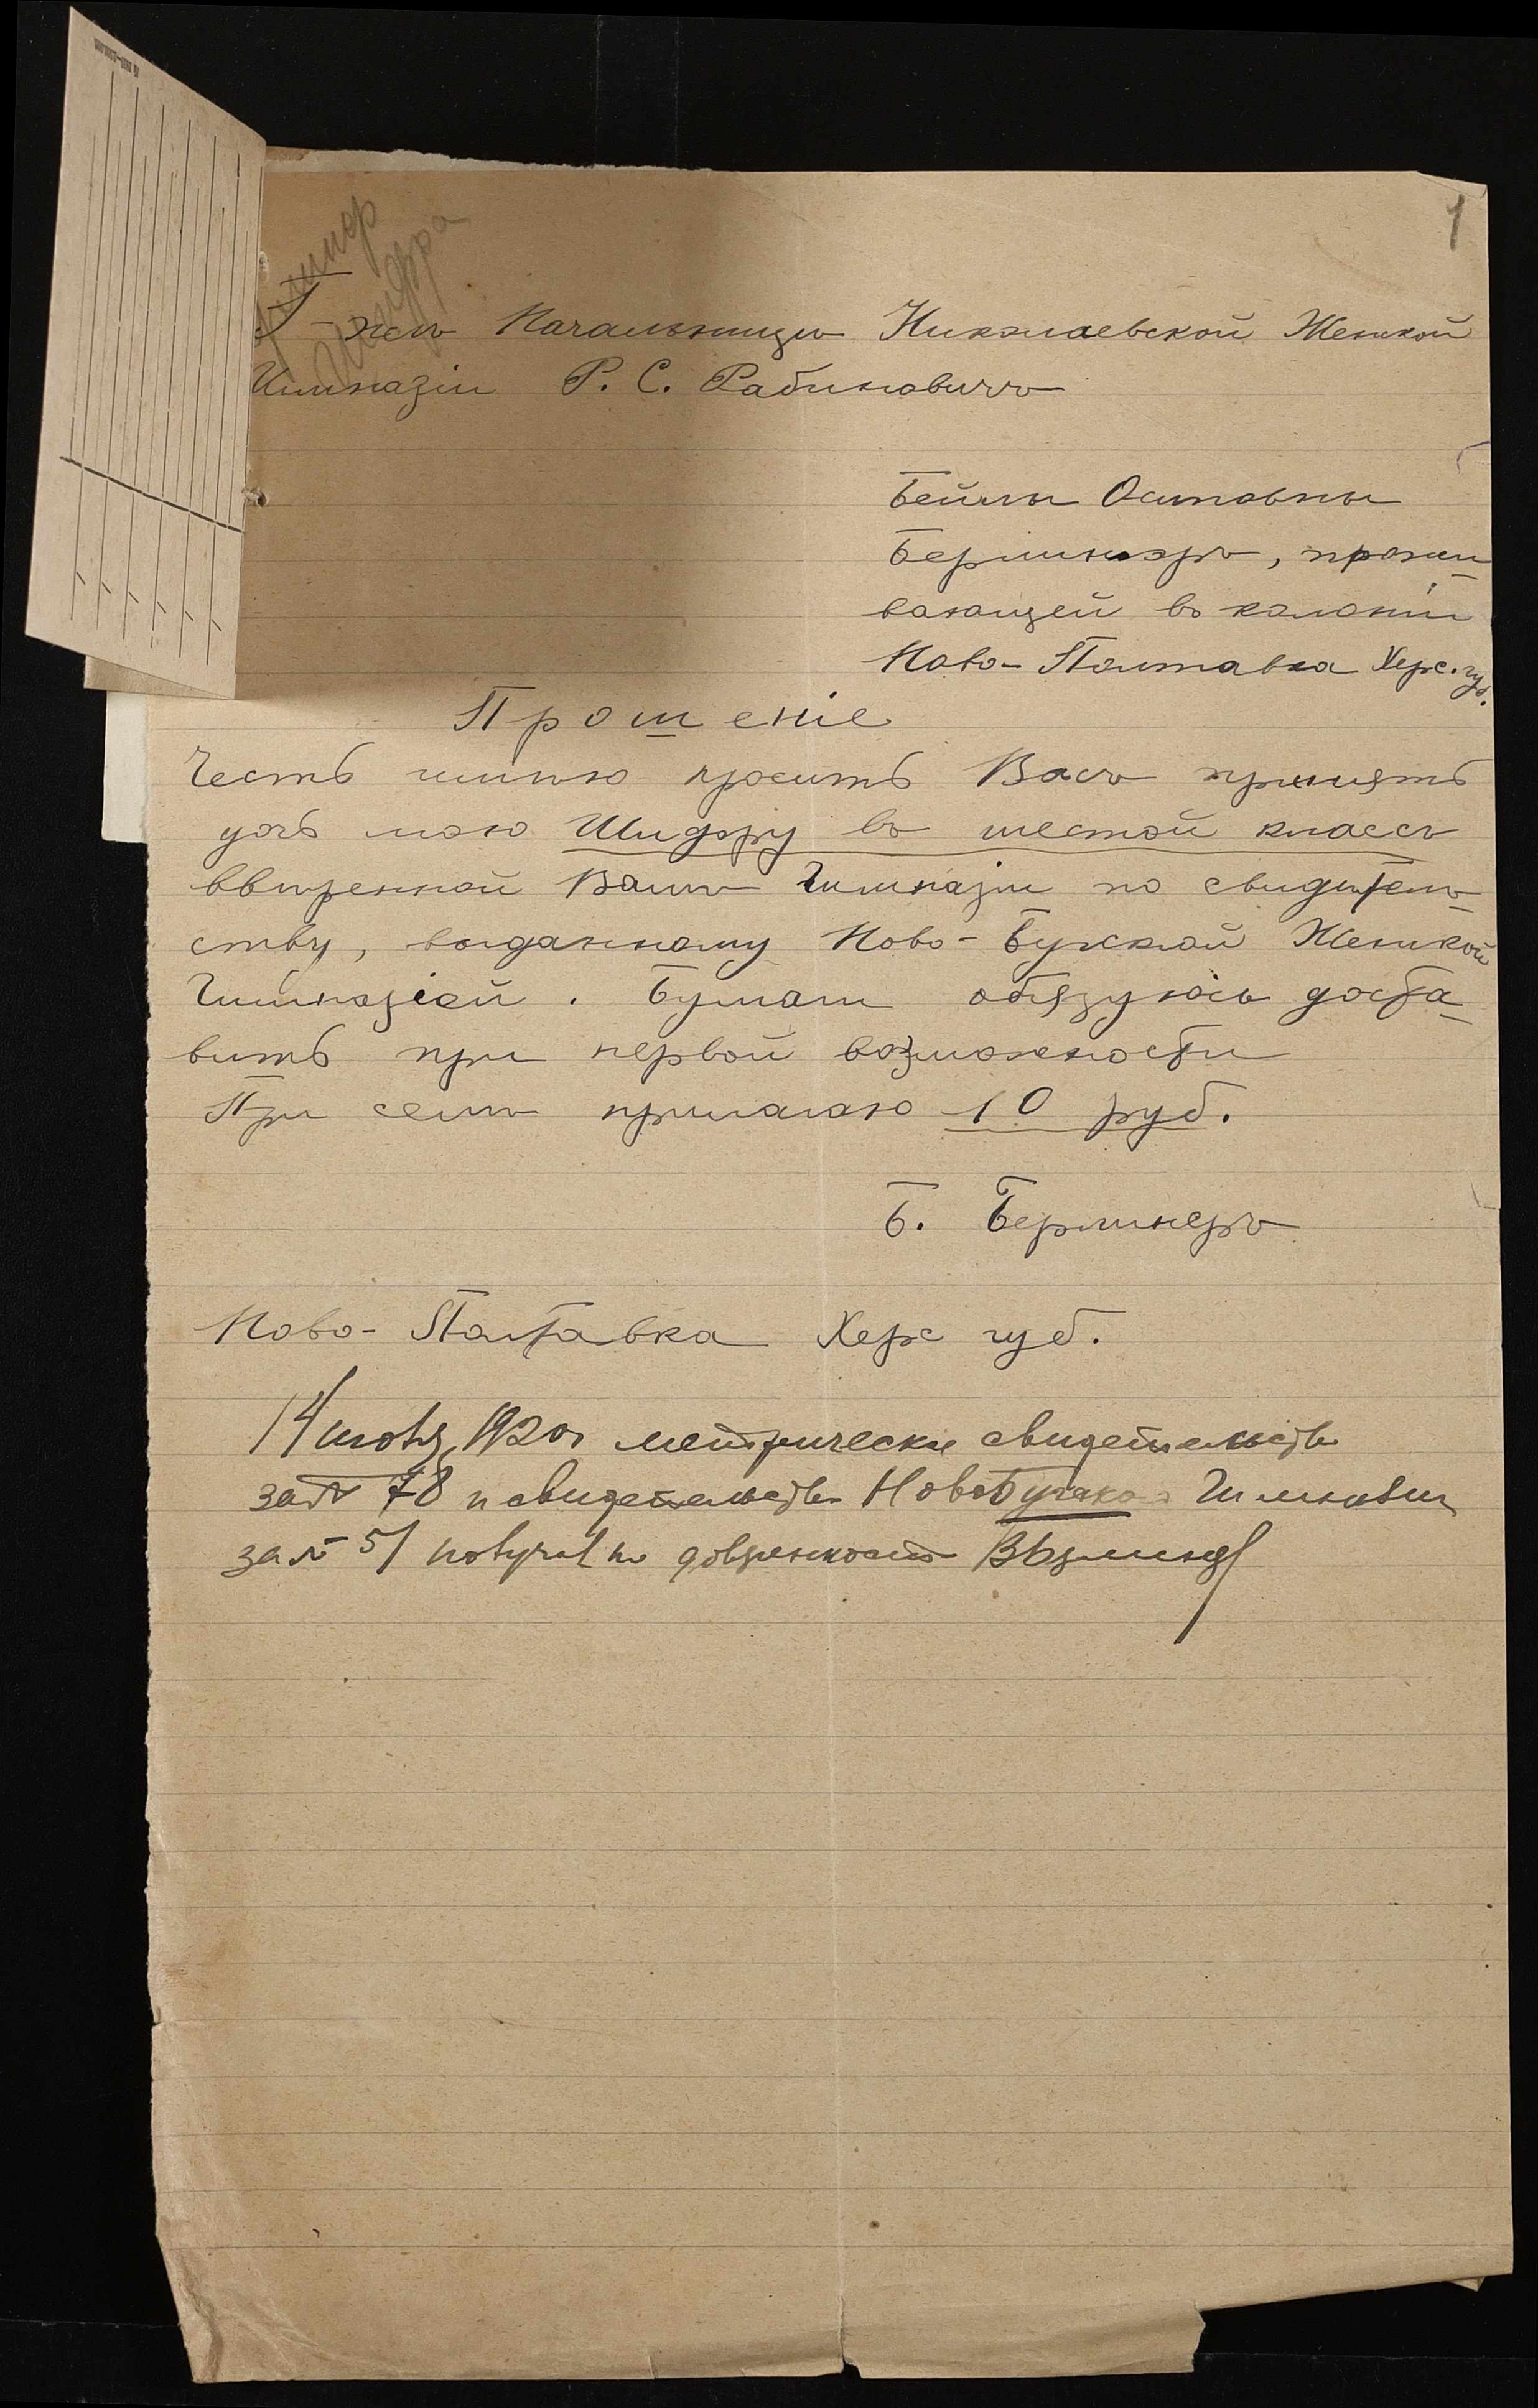 1
Г-жѣ Начальницѣ Николаевской Женской
Гимназіи Р. С. Рабиновичъ
Бейлы Осиповны
Берлинеръ, прожи-
вающей въ колоніи
Ново-Полтавка Херс. губ.
Прошеніе
Честь имѣю просить Васъ принять
дочь мою Шифру въ шестой классъ
ввѣренной Вамъ Гимназіи по свидѣтель-
ству, выданному Ново-Бугской Женской
Гимназіей. Бумаги обязуюсь доста-
вить при первой возможности
При семъ прилагаю 10 руб.
Б. Берлинеръ
Ново-Полтавка Херс губ.
14 июля 1920 метрическое свидетельство
за № 78 и свидетельство Гимназии
за № 51 получил по доверенности